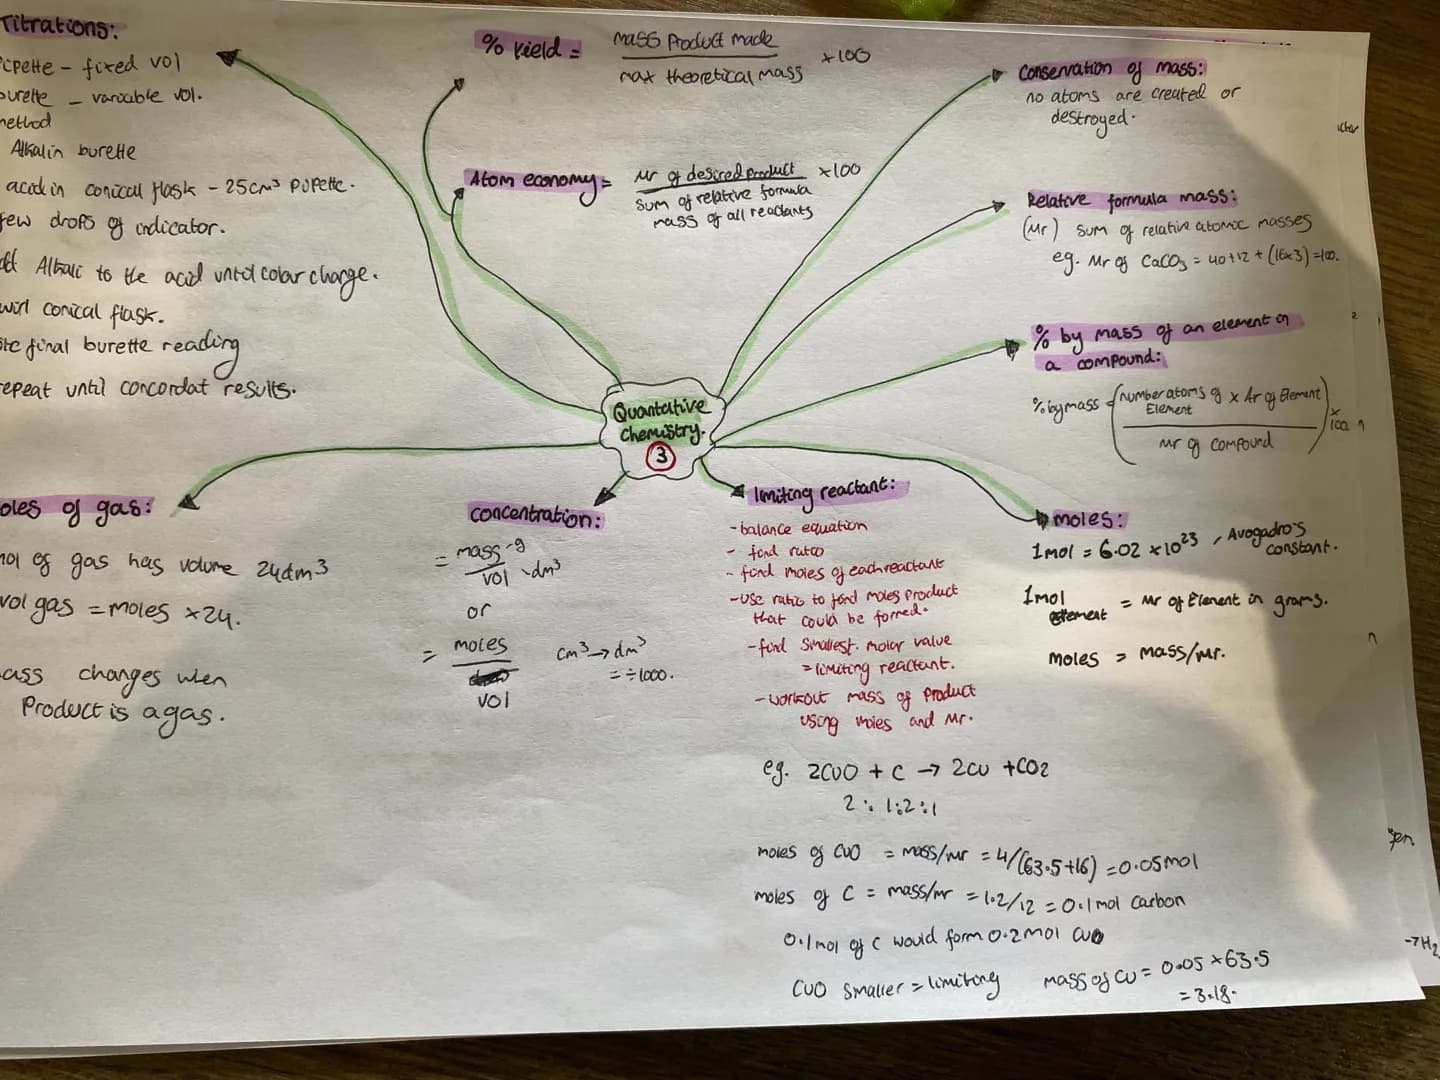 Titrations:
ipette - fixed vol
urette - variable vol.
method
Alkalin burette
acid in conical flask - 25cm³ pipette.
few drops of indicator.
Alkali to the acid until colour change.
conical flask.
final burette reading
repeat until concordat results.
% Yield = mass product made / max theoretical mass ×100
Atom economy = Mr of desired product / sum of relative formula mass of all reactants ×100
Conservation of mass:
no atoms are created or
destroyed.
Relative formula mass:
(Mr) sum of relative atomic masses
eg. Mr of CaCO₃ = 40+12+(16x3)=100.
% by mass of an element in
a compound:
% by mass = (number atoms of Element × Ar of Element / Mr of compound) × 100
Quantative
chemistry.
3
oles of gas:
mol of gas has volume 24dm³
vol gas = moles ×24.
ass changes when
Product is a gas.
concentration:
= mass - g / vol - dm³
or
= moles / vol
cm³ → dm³
= ÷1000.
limiting reactant:
- balance equation
- find ratio
- find moles of each reactant
- use ratio to find moles product
that could be formed.
- find smallest molar value
= limiting reactant.
- workout mass of product
using moles and Mr.
eg. 2CuO + C → 2Cu + CO₂
2 : 1 : 2 : 1
moles of CuO = mass/mr = 4/(63.5+16) = 0.05mol
moles of C = mass/mr = 1.2/12 = 0.1mol carbon
0.1mol of C would form 0.2mol Cu
CuO smaller = limiting
mass of Cu = 0.05 × 63.5
= 3.18.
moles:
1mol = 6.02 ×10²³, Avogadro's
constant.
1mol element = Mr of Element in grams.
moles = mass/Mr.